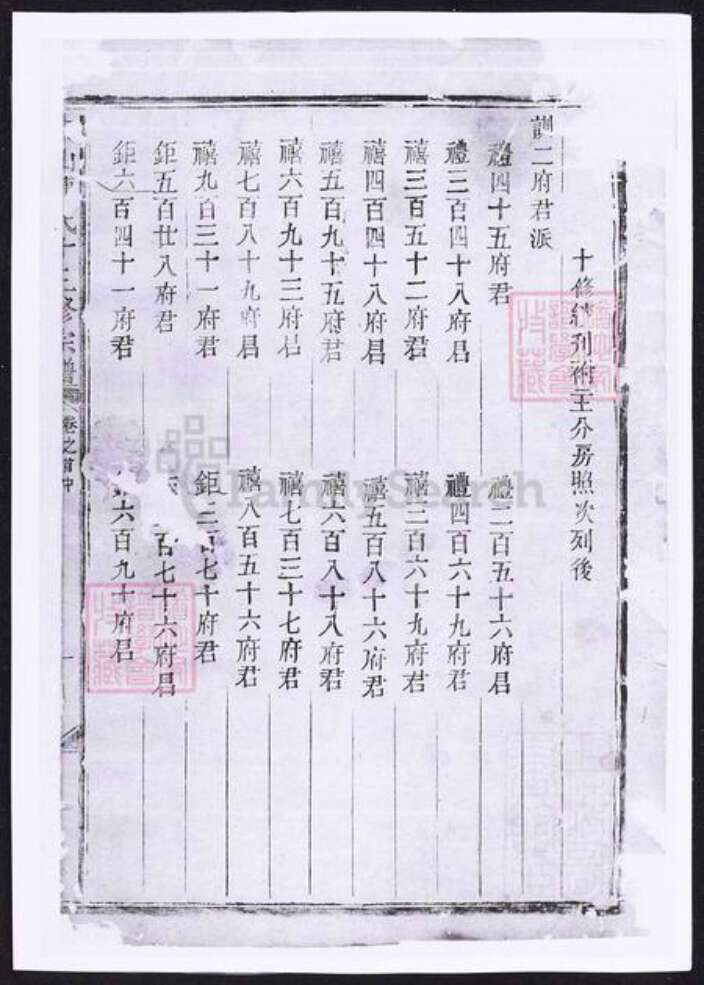 十修 刊祔主分房照次列後
訓二府君派
禮四十五府君
禮二百五十六府君
禮三百四十八府君
禮四百六十九府君
禧三百五十二府君
禧三百六十九府君
禧四百四十八府君
禧五百八十六府君
禧五百九十五府君
禧六百八十八府君
禧六百九十三府君
禧七百三十七府君
禧七百八十九府君
禧八百五十六府君
禧九百三十一府君
鉅 七十府君
鉅五百廿八府君
百七十六府君
鉅六百四十一府君
六百九十府君
氏十三修宗譜 卷之首中
FamilySearch